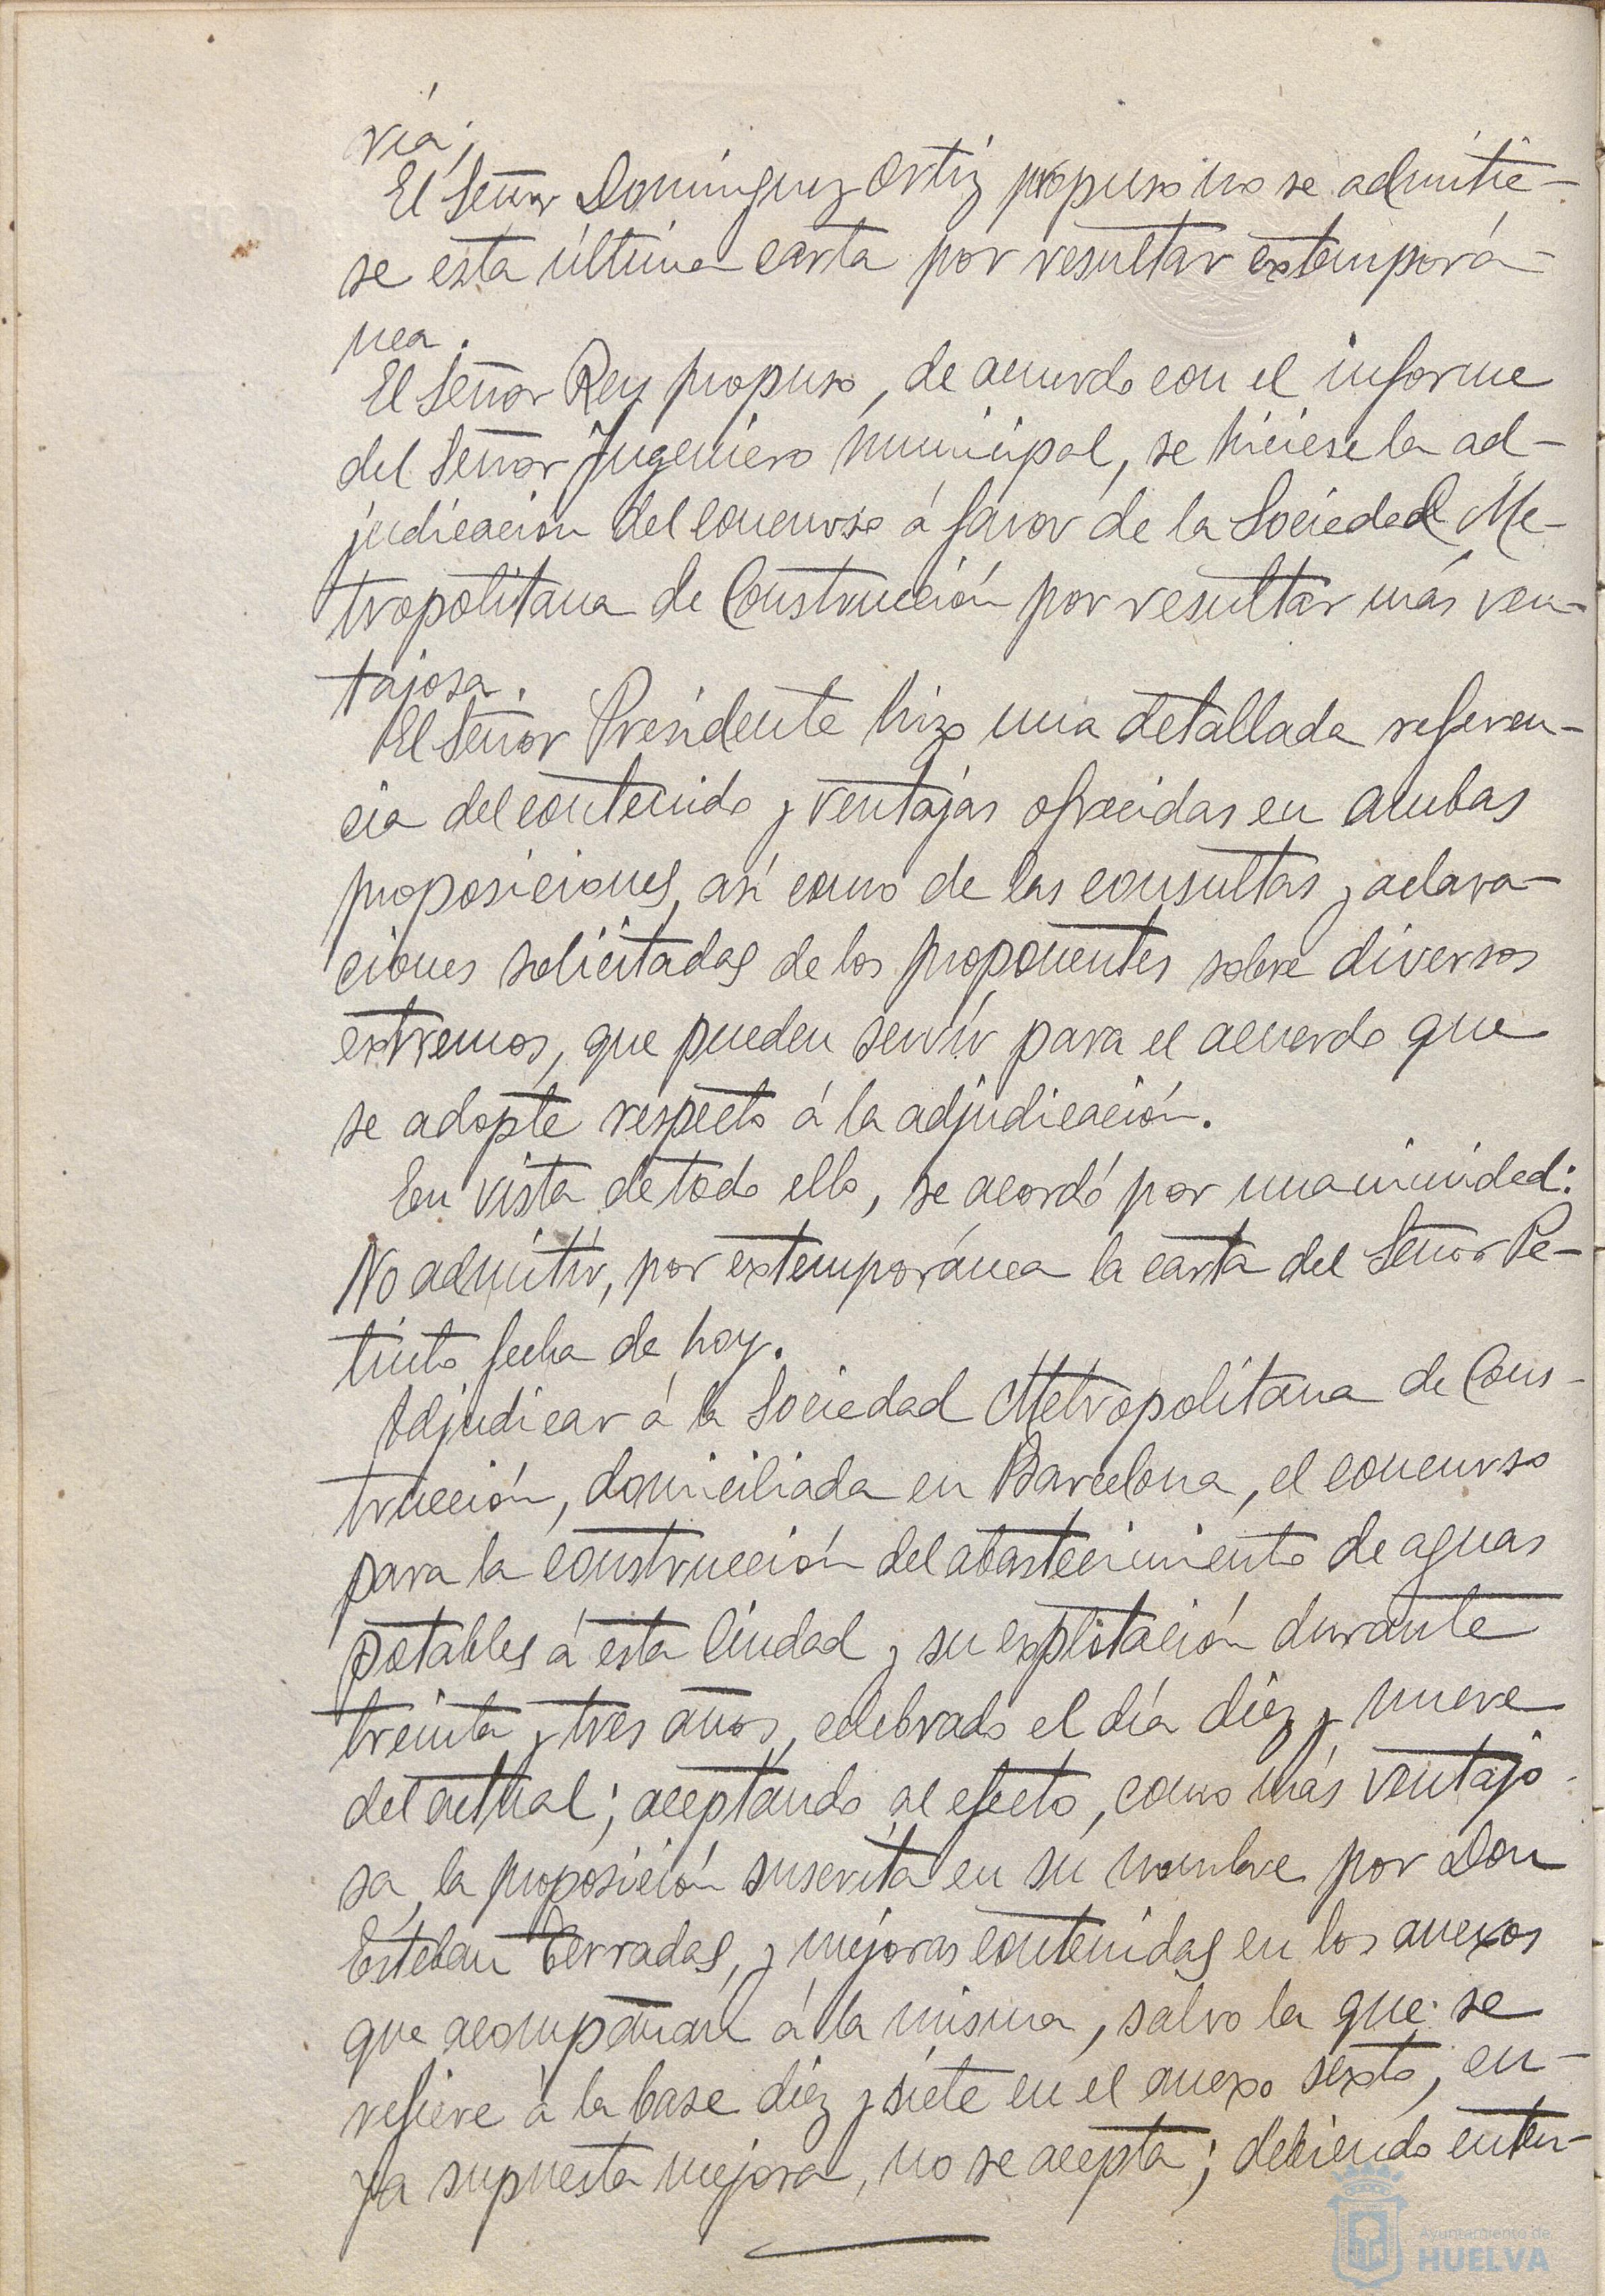 ría;
El Señor Dominguez Ortiz propuso no se admitie-
se esta última carta por resultar extemporá-
nea.
El Señor Rey propuso, de acuerdo con el informe
del Señor Ingeniero municipal, se hiciese la ad-
judicación del concurso á favor de la Sociedad Me-
tropolitana de Construcción por resultar más ven-
tajosa.
El Señor Presidente hizo una detallada referen-
cia del contenido y ventajas ofrecidas en ambas
proposiciones, así como de las consultas y aclara-
ciones solicitadas de los proponentes sobre diversos
extremos, que pueden servir para el acuerdo que
se adopte respecto á la adjudicación.
En vista de todo ello, se acordó por unanimidad:
No admitir, por extemporánea la carta del Señor Pe-
tinto fecha de hoy.
Adjudicar á la Sociedad Metropolitana de Cons-
trucción, domiciliada en Barcelona, el concurso
para la construcción del abastecimiento de aguas
potables á esta Ciudad y su explotación durante
treinta y tres años, celebrado el día diez y nueve
del actual; aceptando al efecto, como más ventajo-
sa, la proposición suscrita en su nombre por Don
Esteban Terradas, y mejoras contenidas en los anexos
que acompañan á la misma, salvo la que se
refiere á la base diez y siete en el anexo sexto, cu-
ya supuesta mejora, no se acepta; debiendo enten-
Ayuntamiento de
HUELVA